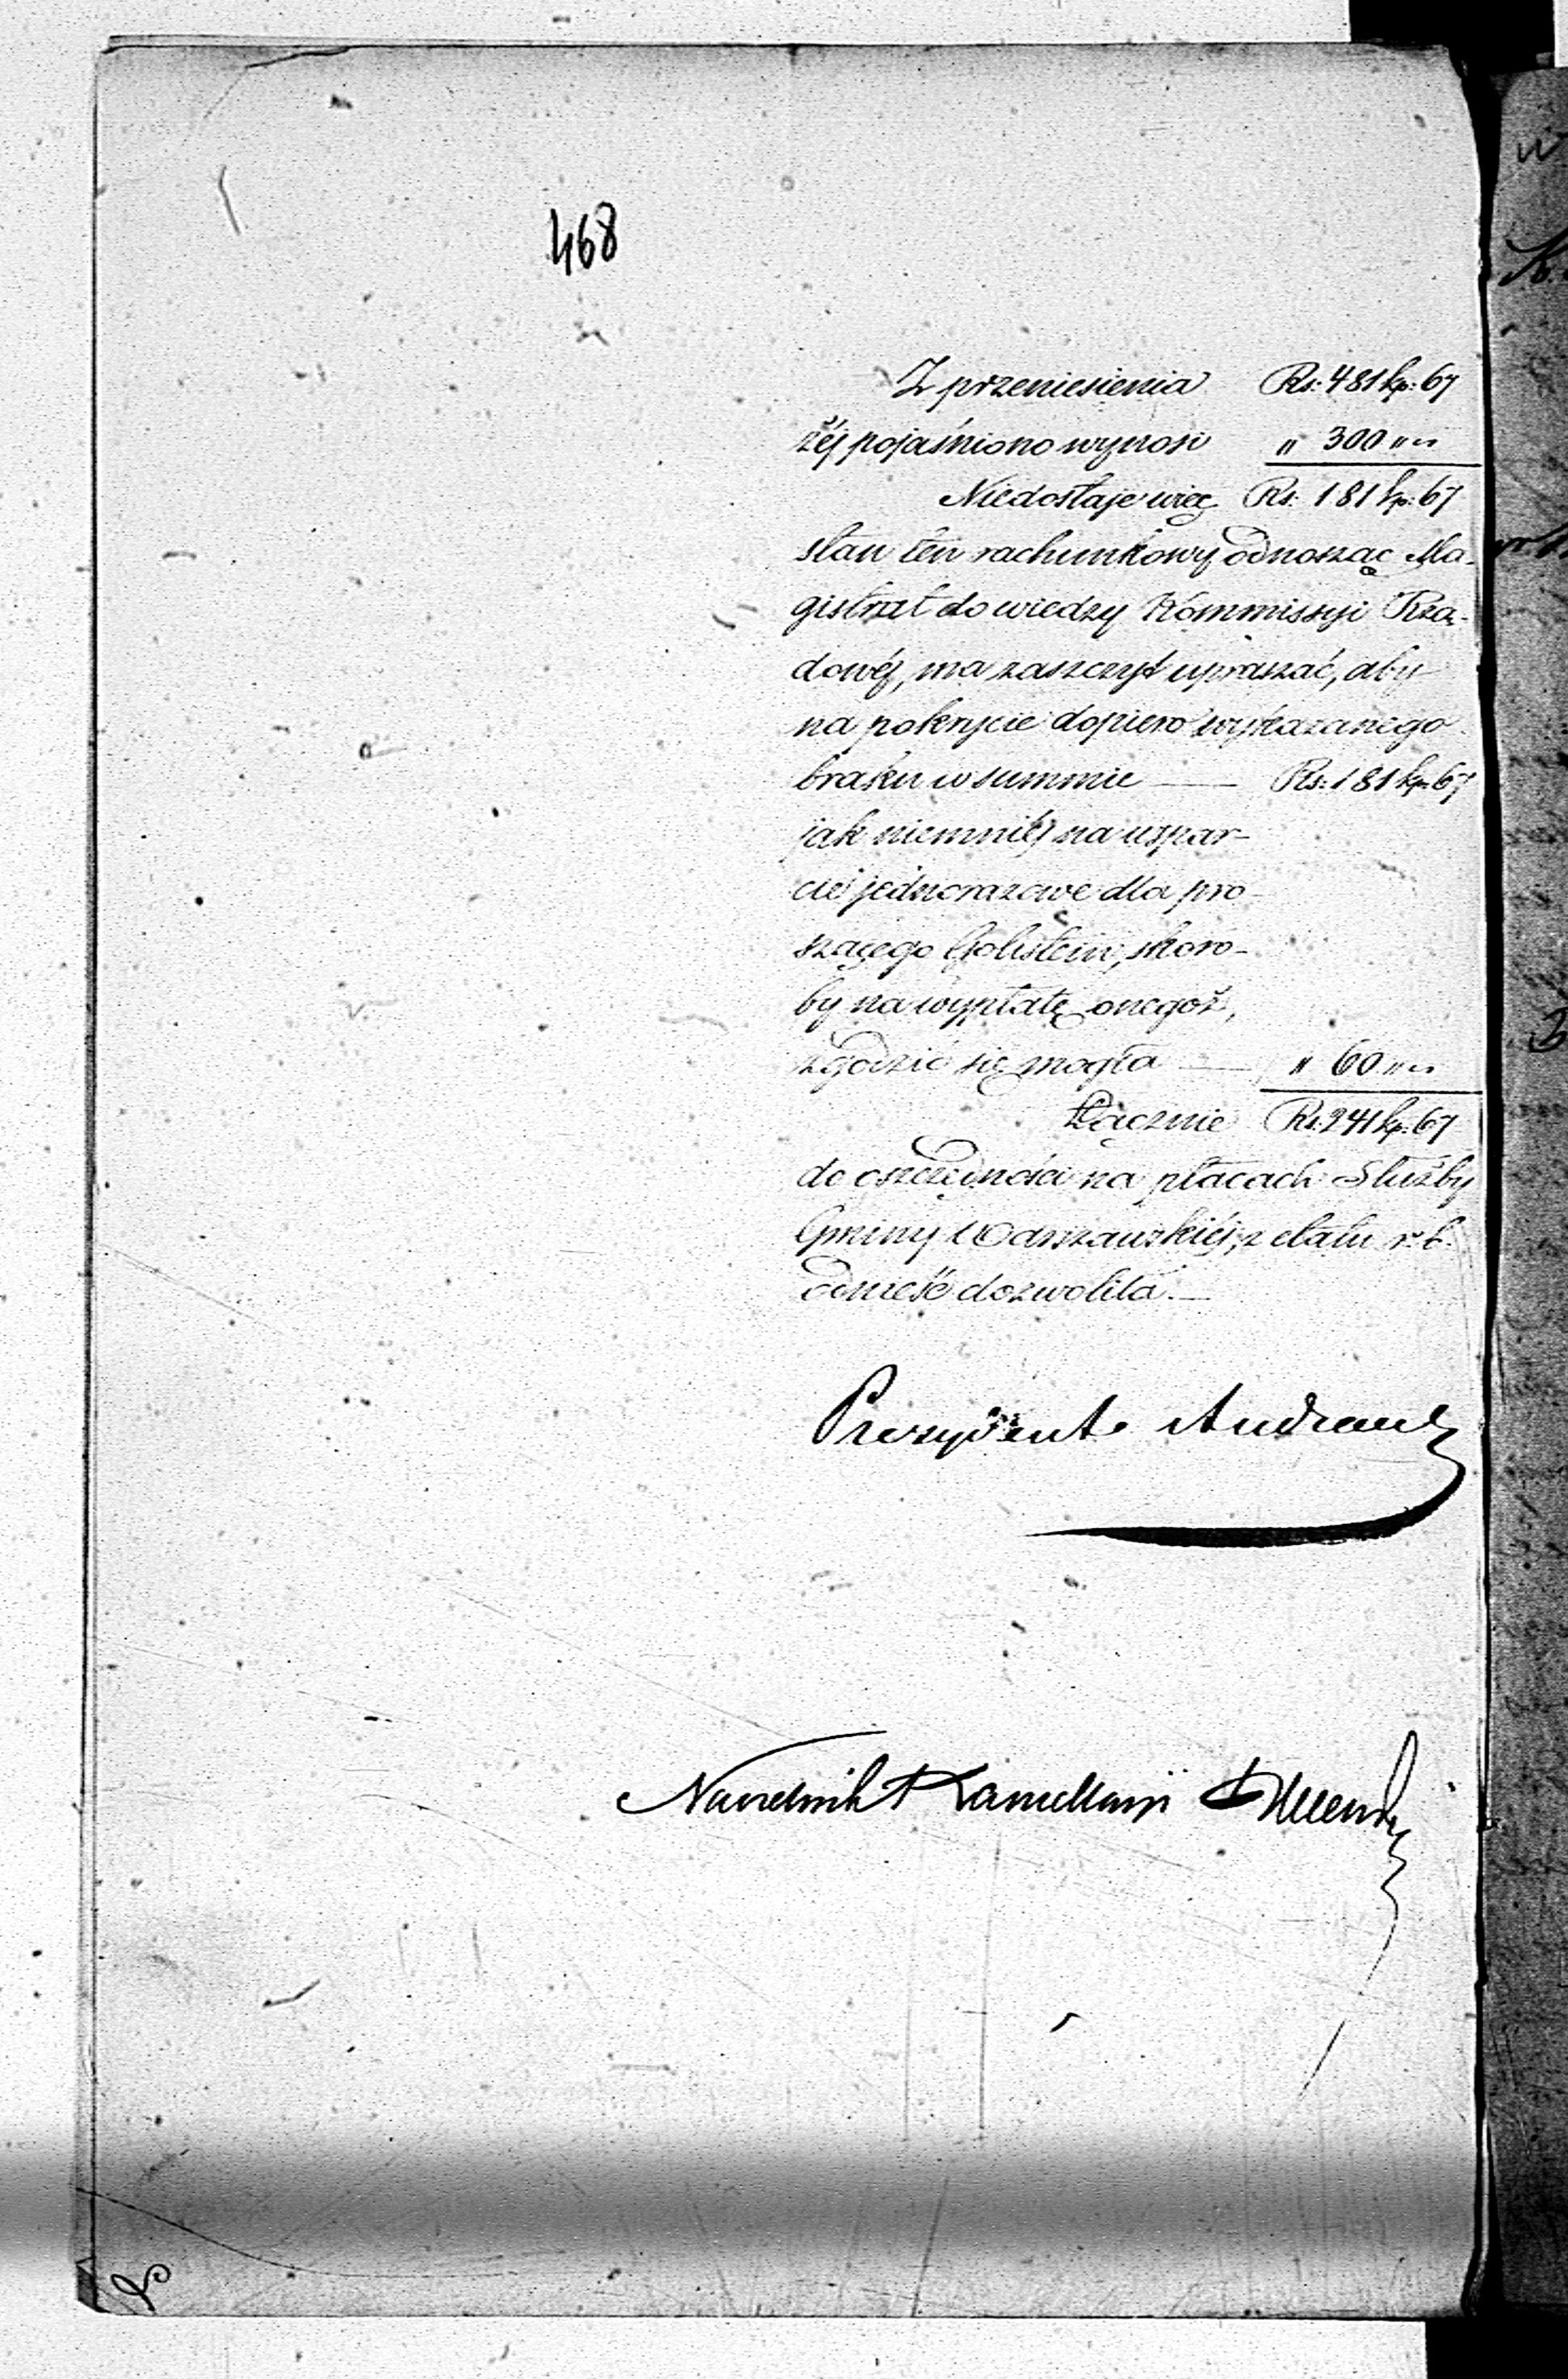 468
Z przeniesienia Rs: 481 kp: 67
żéj pojaśniono wynosi " 300 " "
Niedostaje więc Rs: 181 kp: 67
stan ten rachunkowy odnosząc Ma-
gistrat do wiedzy Kommissyi Rzą-
dowéj, ma zaszczyt upraszać, aby
na pokrycie dopiero wykazanego
braku w summie — Rs: 181 kp: 67
jak niemniéj na wspar-
cie jednorazowe dla pro-
szącego Golistein, skoro-
by na wypłatę onegoż,
zgodzić się mogła — " 60 " "
Łącznie Rs: 241 kp: 67
do oszczędności na płacach Służby
Gminy Warszawskiéj, z etatu r. b.
odnieść dozwoliła. —
Prezydent
Naczelnik Kancellaryi